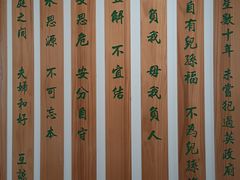 星數十年 未嘗犯過英政府
自有兒孫福 不為兒孫
負我 毋我負人
宜解 不宜結
安思危 安分自守
水思源 不可忘本
庭之間 夫婦和好 互諒